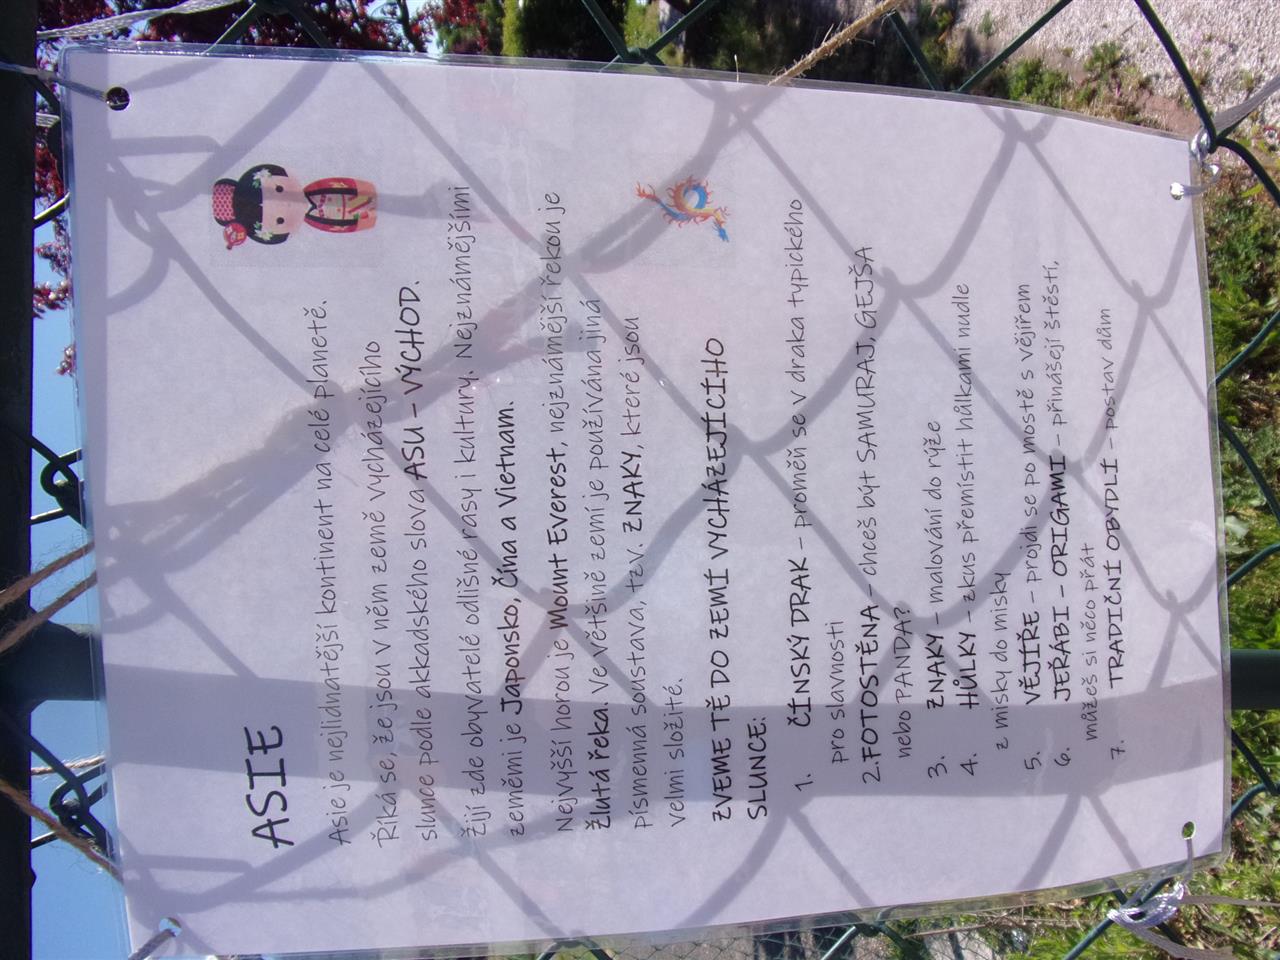 ASIE
Asie je nejlidnatější kontinent na celé planetě.
Říká se, že jsou v něm země vycházejícího
slunce podle akkadského slova ASU – VÝCHOD.
Žijí zde obyvatelé odlišné rasy i kultury. Nejznámějšími
zeměmi je Japonsko, Čína a Vietnam.
Nejvyšší horou je Mount Everest, nejznámější řekou je
Žlutá řeka. Ve většině zemí je používána jiná
písmenná soustava, tzv. ZNAKY, které jsou
velmi složité.
ZVEME TĚ DO ZEMÍ VYCHÁZEJÍCÍHO
SLUNCE:
1. ČÍNSKÝ DRAK – proměň se v draka typického
pro slavnosti
2. FOTOSTĚNA – chceš být SAMURAJ, GEJŠA
nebo PANDA?
3. ZNAKY – malování do rýže
4. HŮLKY – zkus přemístit hůlkami nudle
z misky do misky
5. VĚJÍŘE – projdi se po mostě s vějířem
6. JEŘÁBI – ORIGAMI – přinášejí štěstí,
můžeš si něco přát
7. TRADIČNÍ OBYDLÍ – postav dům